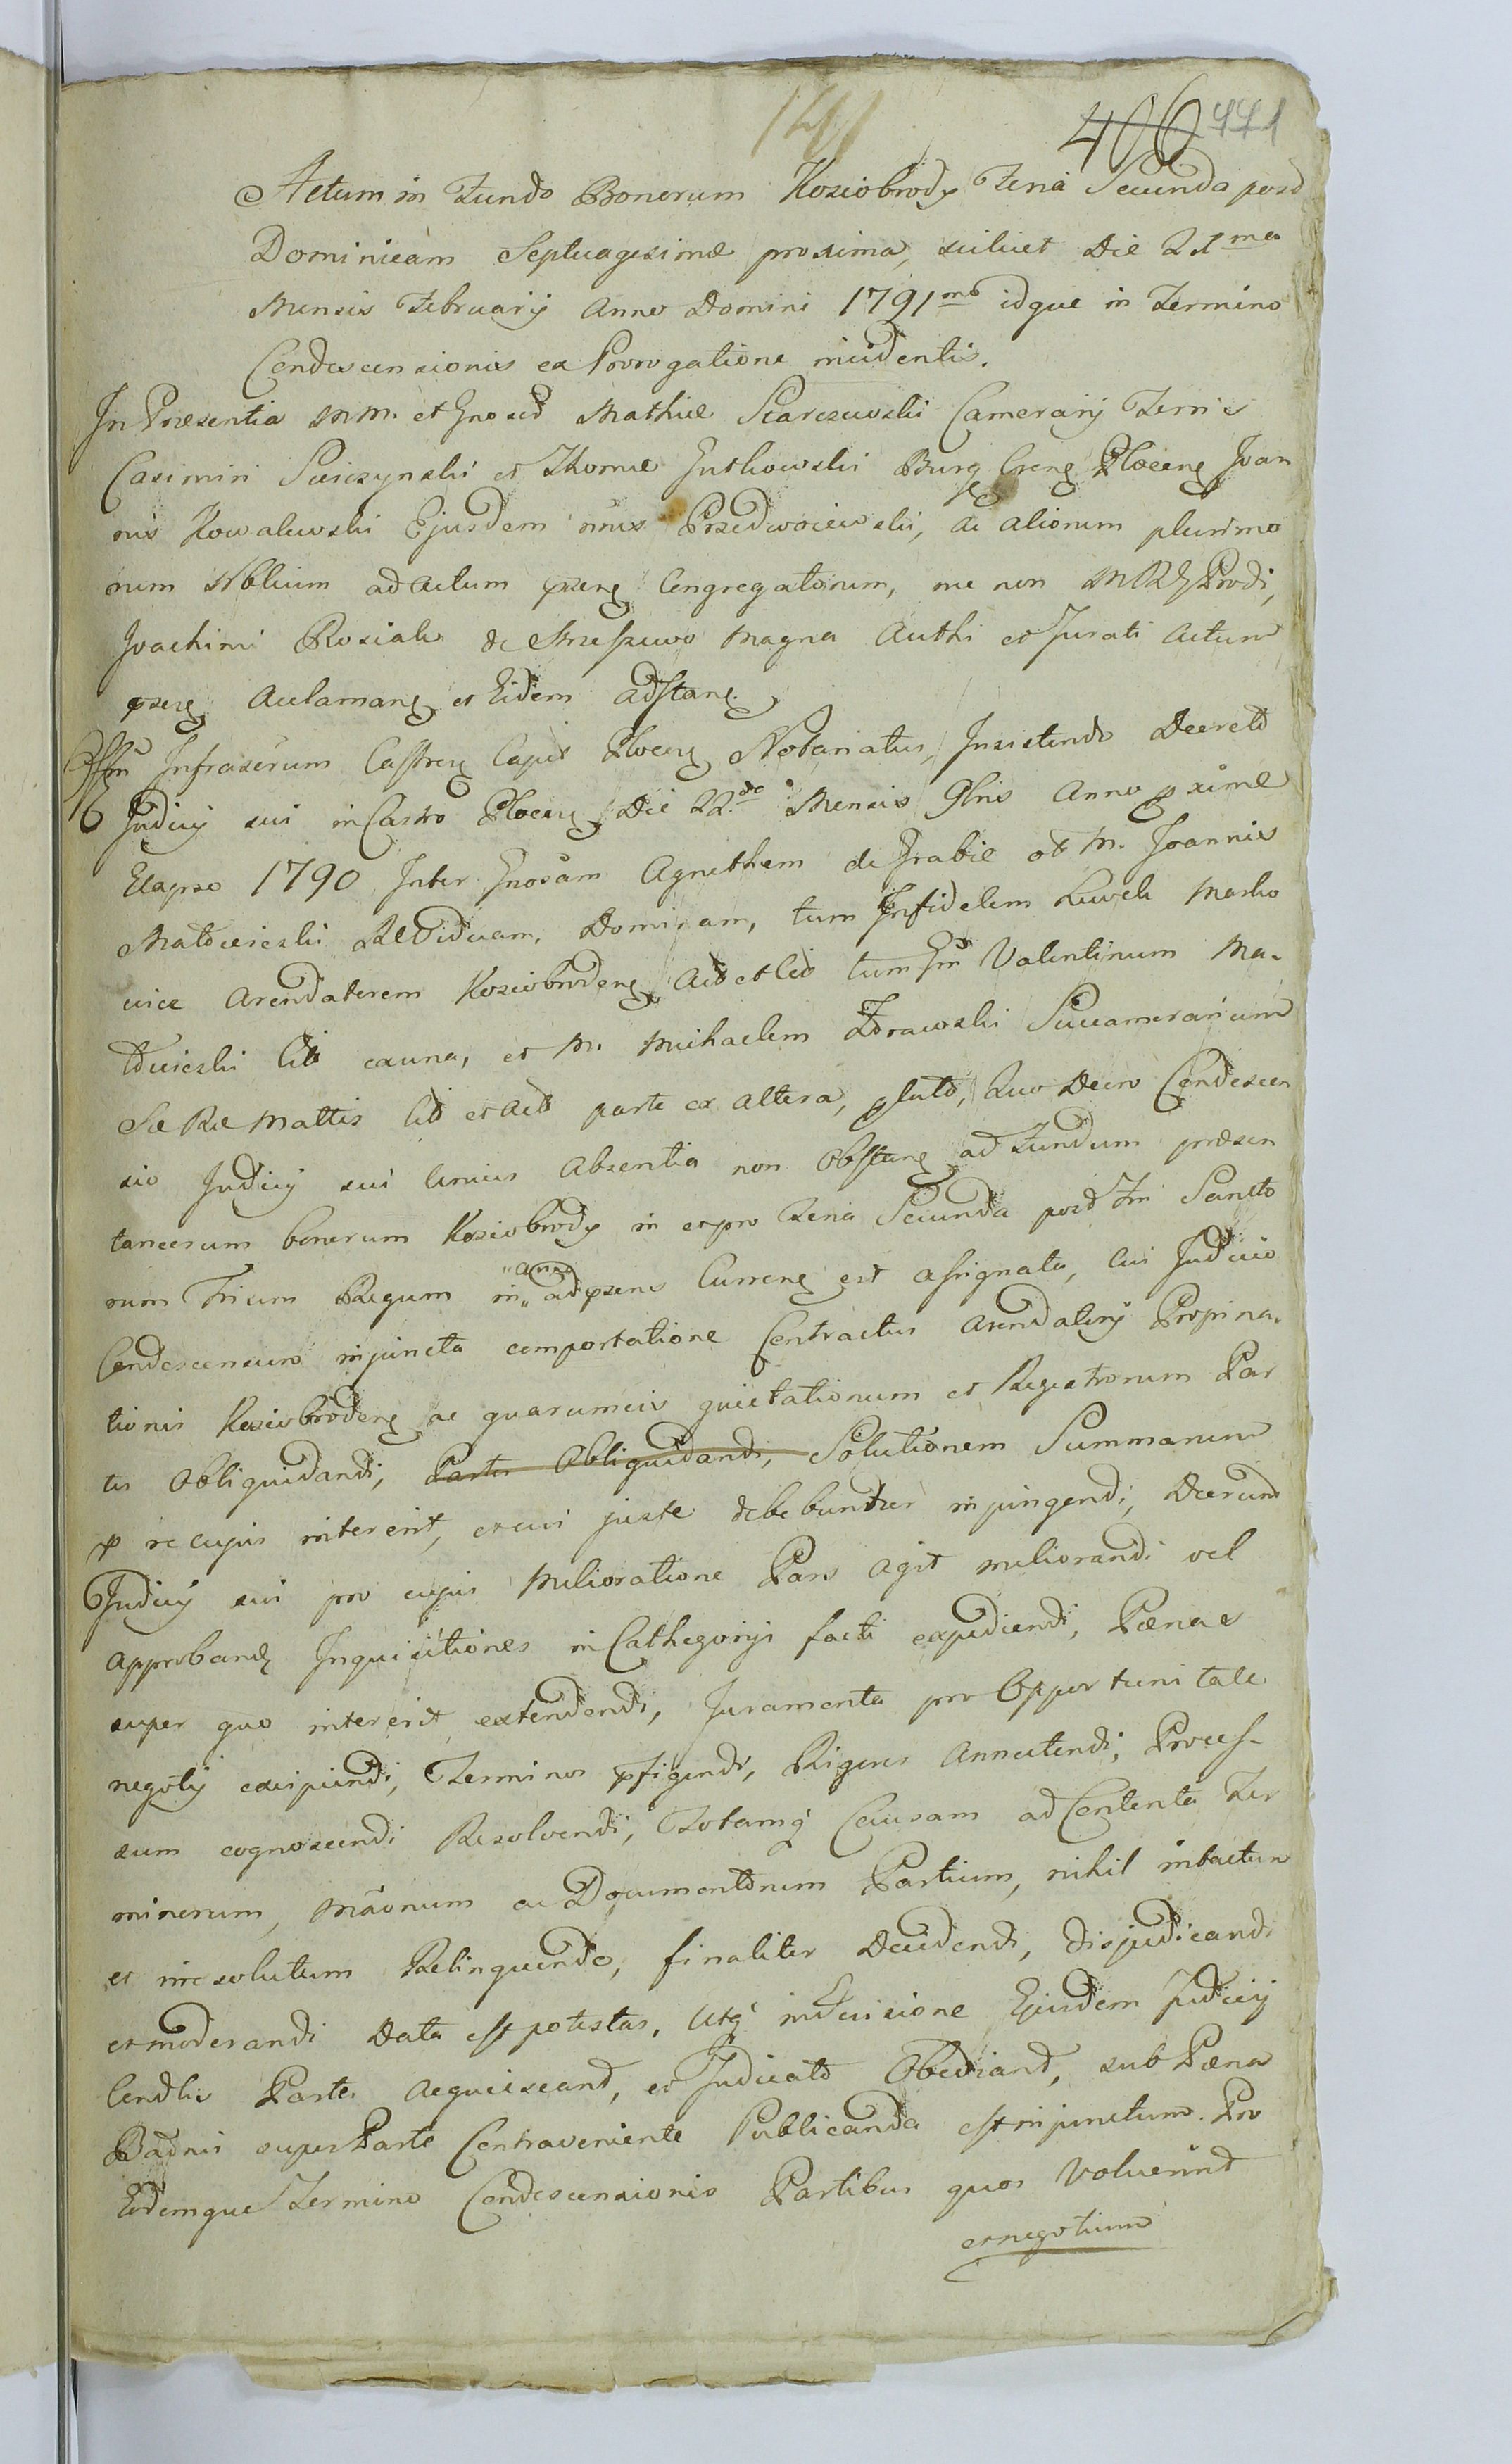 141 406 441
Actum in Fundo Bonorum Koziobrody Feria Secunda post
Dominicam Septuagesimæ proxima, scilicet Die 21ma
Mensis Februarij Anno Domini 1791mo idque in Termino
Condescensionis ex Prorogatione incidentis.
In Præsentia MM. et Gnosed Mathiæ Scarszewski Camerarij Terris
Casimiri Swiezynski et Thomæ Gutkowski Burg Plocen Joan
nis Kowalewski Ejusdem Przedwoiewski, ac aliorum plurimo
rum Nblium ad actum præn Congregatorum, nec non Prodi,
Joachimi Rosiak de Magna Authi et Jurati actum
præn acclaman et Eidem adstan.
Offm Infrascrum Castren Capit Plocen Notariatus, Insistendo Decreto
Judicij sui in Castro Plocen Die 22do Mensis 9bris Anno pxime
Elapso 1790 Inter Gnosam Agnethem de Grabie ol M. Joannis
Małowieski Viduam, Dominam, tum Infidelem Lewek Marko
wicz Arendatorem Koziobroden Act et Cit tum Gm Valentinum Ma-
łowieski Cit ex una, et M. Michaelem Zorawski Succamerarium
Sæ Ræ Mattis Cit et Act parte ex altera, plato, quo Decro Condescen
sio Judicij sui Unius Absentia non Obstan ad Fundum præsen
taneorum bonorum Koziobrody in et pro Feria Secunda post Fm Sancto
rum Trium Regum in anno ad præns Curren est assignata, cui Judicio
Condescensuro injuncta comportatione Contractus Arendatorij Propina-
tionis Koziobroden ac quarumvis quietationum et Regestrorum Par
tes Obliquidandi, Partes Obliquidandi, Solutionem Summarum
p re cujus intererit, et cui juste debebuntur injungendi, Decrum
Judicij sui pro cujus Melioratione Pars agit meliorandi vel
approband Inquisitiones in Cathegorijs facti expediendi, Pænas
super quo intererit extendendi, Juramenta pro Opportunitate
negotij excipiendi, Terminos pfigendi, Rigores Annectendi, Proces-
sum cognoscendi Resolvendi, Totamq Causam ad Contenta Ter
minorum, Mãonum ac Documentorum Partium, nihil intactum
et irresolutum Relinquendo, finaliter Decidendi, disjudicandi
et moderandi Data est potestas, Utq in Decisione Ejusdem Judicij
Condlis Partes acquiescant, et Judicato Obediant, sub Pæna
Badnis super Parte Contraveniente Publicanda est injunctum. Pro
Eodemque Termino Condescensionis Partibus quos Voluerint
et negotium